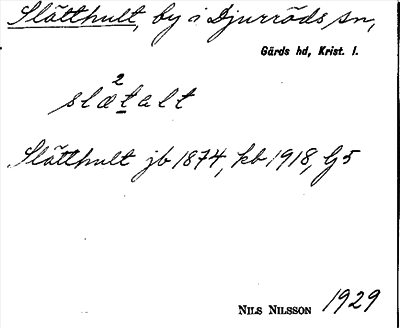 Slätthult, by i Djurröds sn,
Gärds hd, Krist. l.
2
slætalt
Slätthult jb 1874, kb 1918, Gj5
NILS NILSSON 1929